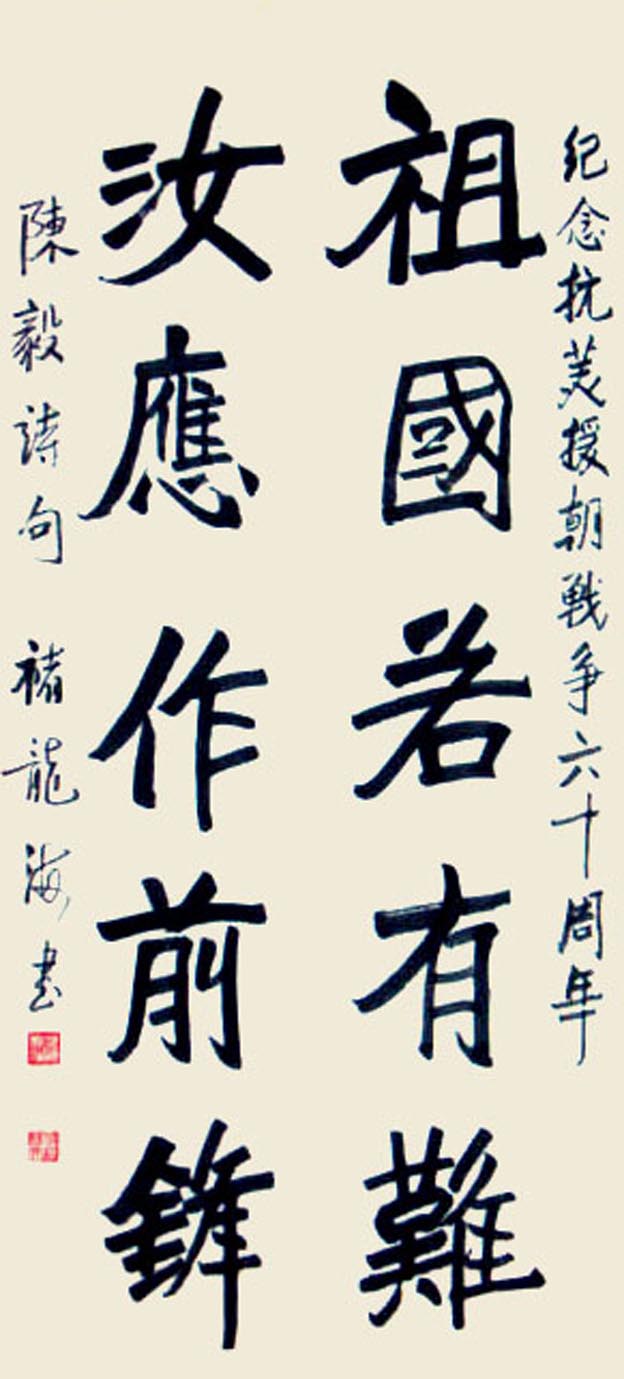 纪念抗美援朝战争六十周年
祖國若有難
汝應作前鋒
陳毅诗句 褚龍海书